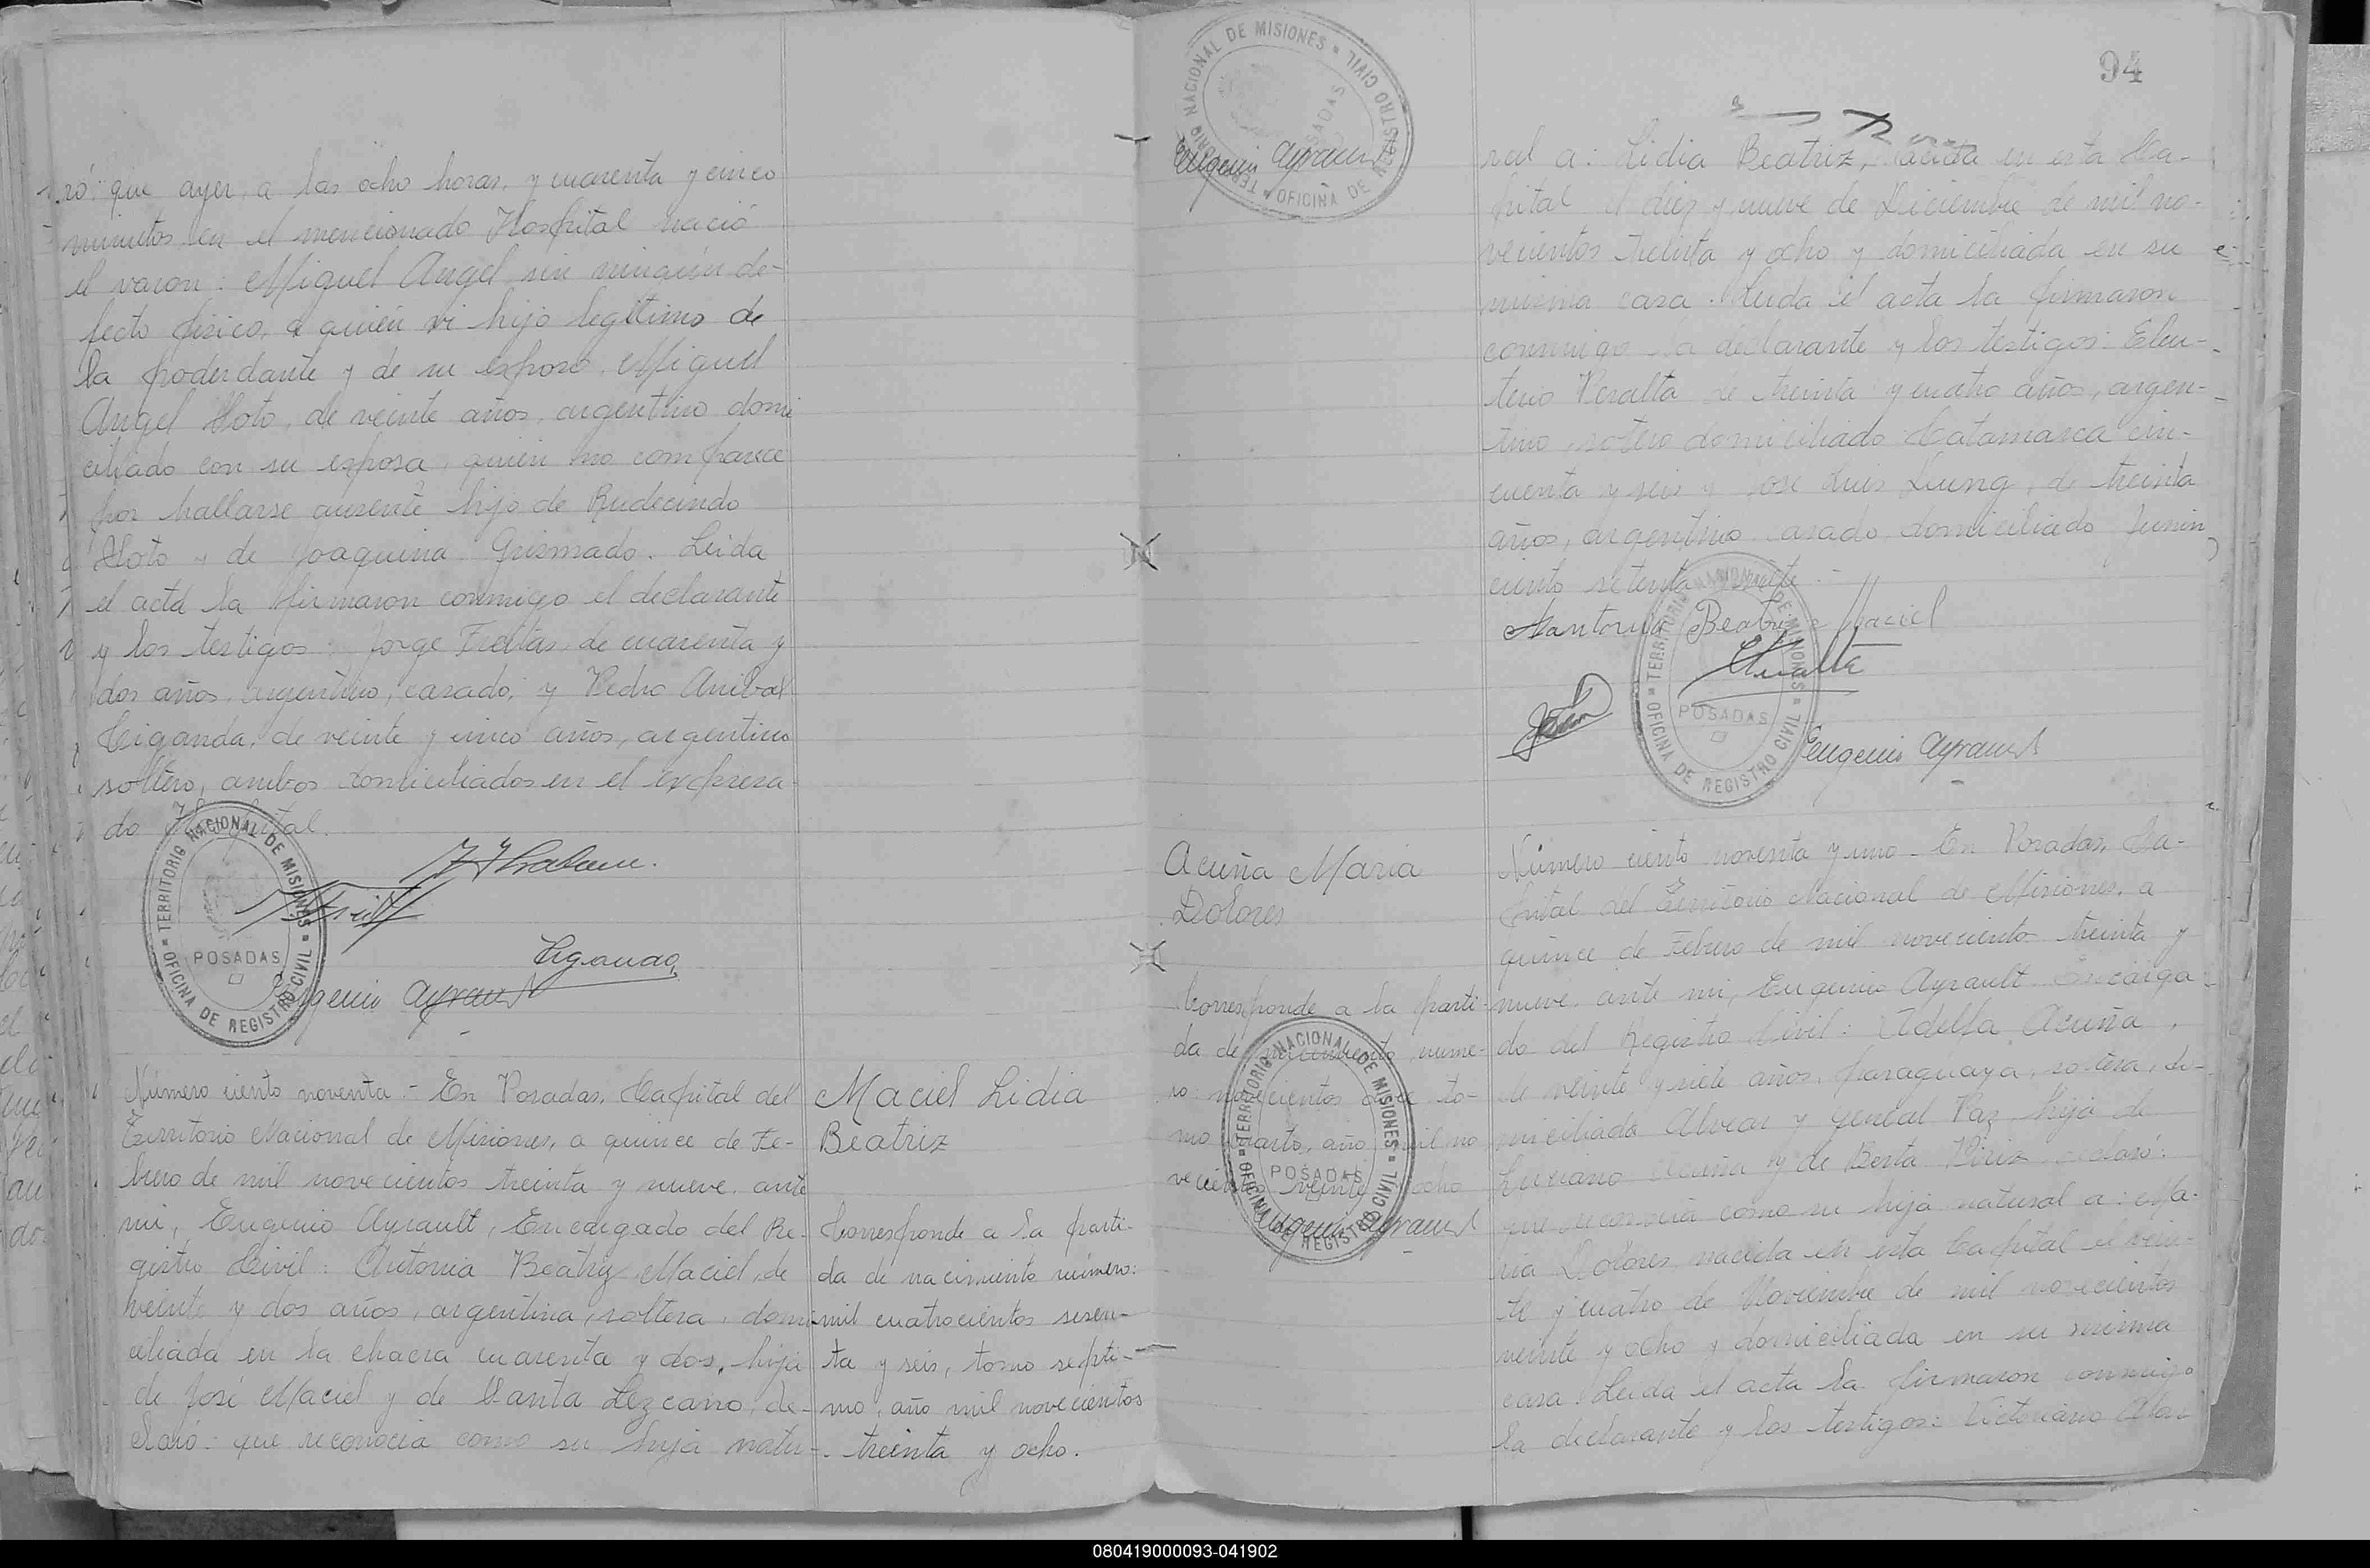 ró: que ayer, a las ocho horas, y cuarenta y cinco
minutos en el mencionado Hospital nació
el varon: Miguel Angel, sin ningún de-
fecto físico, a quien vi hijo legítimo de
la poderdante y de su esposo, Miguel
Angel Soto, de veinte años, argentino domi
ciliado con su esposa, quien no comparece
por hallarse ausente hijo de Rudecindo
Soto y de Joaquina Grismado. Leida
el acta la firmaron conmigo el declarante
y los testigos: Jorge Freitas de cuarenta y
dos años, argentino, casado, y Pedro Anibal
Ciganda, de veinte y cinco años, argentino
soltero, ambos domiciliados en el expresa-
do Hospital.
TERRITORIO NACIONAL DE MISIONES
POSADAS
OFICINA DE REGISTRO CIVIL
Ciganda
Eugenio Ayrault
Número ciento noventa - En Posadas, Capital del
Territorio Nacional de Misiones, a quince de Fe-
brero de mil novecientos treinta y nueve, ante
mi, Eugenio Ayrault, Encargado del Re-
gistro Civil: Antonia Beatriz Maciel, de
veinte y dos años, argentina, soltera, domi-
ciliada en la chacra cuarenta y dos, hija
de José Maciel y de Santa Lezcano, de-
claró: que reconocia como su hija natu-
Maciel Lidia
Beatriz
Corresponde a la parti-
da de nacimiento número:
mil cuatrocientos sesen-
ta y seis, tomo septi-
mo, año mil novecientos
treinta y ocho.
94
TERRITORIO NACIONAL DE MISIONES
POSADAS
OFICINA DE REGISTRO CIVIL
Eugenio Ayrault
ral a: Lidia Beatriz, nacida en esta Ca-
pital el diez y nueve de Diciembre de mil no-
vecientos treinta y ocho y domiciliada en su
misma casa. Leida el acta la firmaron
conmigo la declarante y los testigos: Eleu-
terio Peralta de treinta y cuatro años, argen-
tino, soltero domiciliado Catamarca cin-
cuenta y seis y José Luis Leung, de treinta
años, argentino casado domiciliado Junin
ciento setenta y siete.-
Antonia Beatriz Maciel
EPeralta
TERRITORIO NACIONAL DE MISIONES
POSADAS
OFICINA DE REGISTRO CIVIL
Eugenio Ayrault
Acuña Maria
Dolores
Corresponde a la parti-
da de nacimiento núme-
ro: novecientos doce to-
mo cuarto, año mil no
vecientos veinte y ocho
TERRITORIO NACIONAL DE MISIONES
POSADAS
OFICINA DE REGISTRO CIVIL
Eugenio Ayrault
Número ciento noventa y uno - En Posadas, Ca-
pital del Territorio Nacional de Misiones, a
quince de Febrero de mil novecientos treinta y
nueve, ante mi, Eugenio Ayrault Encarga-
do del Registro Civil: Adelfa Acuña,
de veinte y siete años, paraguaya, soltera, do-
miciliada Alvear y General Paz hija de
Luciano Acuña y de Berta Piriz declaró:
que reconocia como su hija natural a: Ma-
ria Dolores nacida en esta Capital el vein-
te y cuatro de Noviembre de mil novecientos
veinte y ocho y domiciliada en su misma
casa. Leida el acta la firmaron conmigo
la declarante y los testigos: Victoriano
080419000093-041902